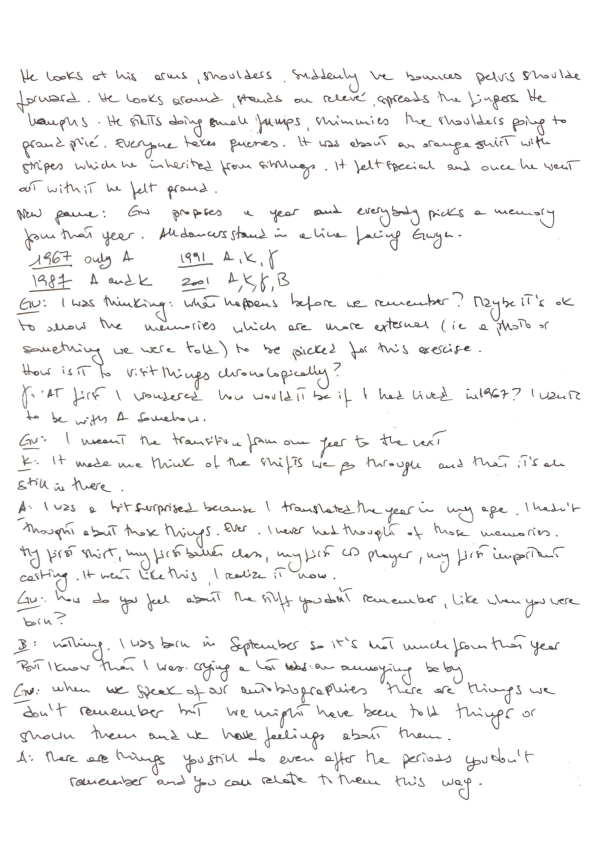 He looks at his arms, shoulders. Suddenly he bounces pelvis shoulde
forward. He looks around, stands on relevé, spreads the fingers. He
laughs. He starts doing small jumps, shimmies the shoulders going to
grand plié. Everyone takes guesses. It was about an orange shirt with
stripes which he inherited from siblings. It felt special and once he went
out with it he felt proud.
New game: Gw proposes a year and everybody picks a memory
from that year. All dancers stand in a line facing Gwyn.
1967 only A 1991 A, K, J
1987 A and K 2001 A, K, J, B
Gw: I was thinking: what happens before we remember? Maybe it's ok
to allow the memories which are more external (ie a photo or
something we were told) to be picked for this exercise.
How is it to visit things chronologically?
J: At first I wondered how would it be if I had lived in 1967? I want
to be with A somehow.
Gw: I meant the transition from one year to the next
K: It made me think of the shifts we go through and that it's all
still in there.
A: I was a bit surprised because I translated the year in my age. I hadn't
thought about those things. Ever. I never had thought of those memories.
My first shirt, my first ballet class, my first CD player, my first important
casting. It went like this, I realize it now.
Gw: how do you feel about the stuff you don't remember, like when you were
born?
B: nothing. I was born in September so it's not much from that year
But I know that I was crying a lot an annoying baby
Gw: when we speak of our autobiographies there are things we
don't remember but we might have been told things or
shown them and we have feelings about them.
A: there are things you still do even after the periods you don't
remember and you can relate to them this way.